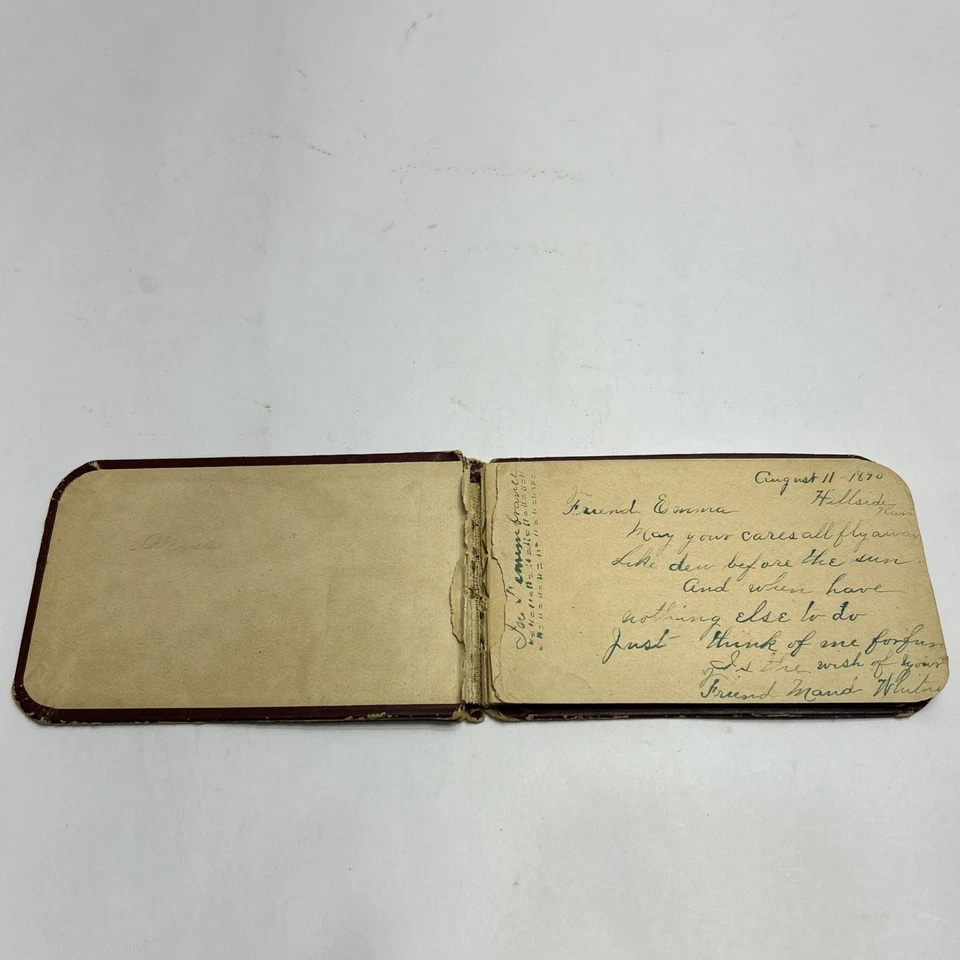 August 11 - 1890
Hillside
Kan
Friend Emma
May your cares all fly away
Like dew before the sun.
And when have
nothing else to do
Just think of me for fun
Is the wish of your
Friend Maud
In Remembrance